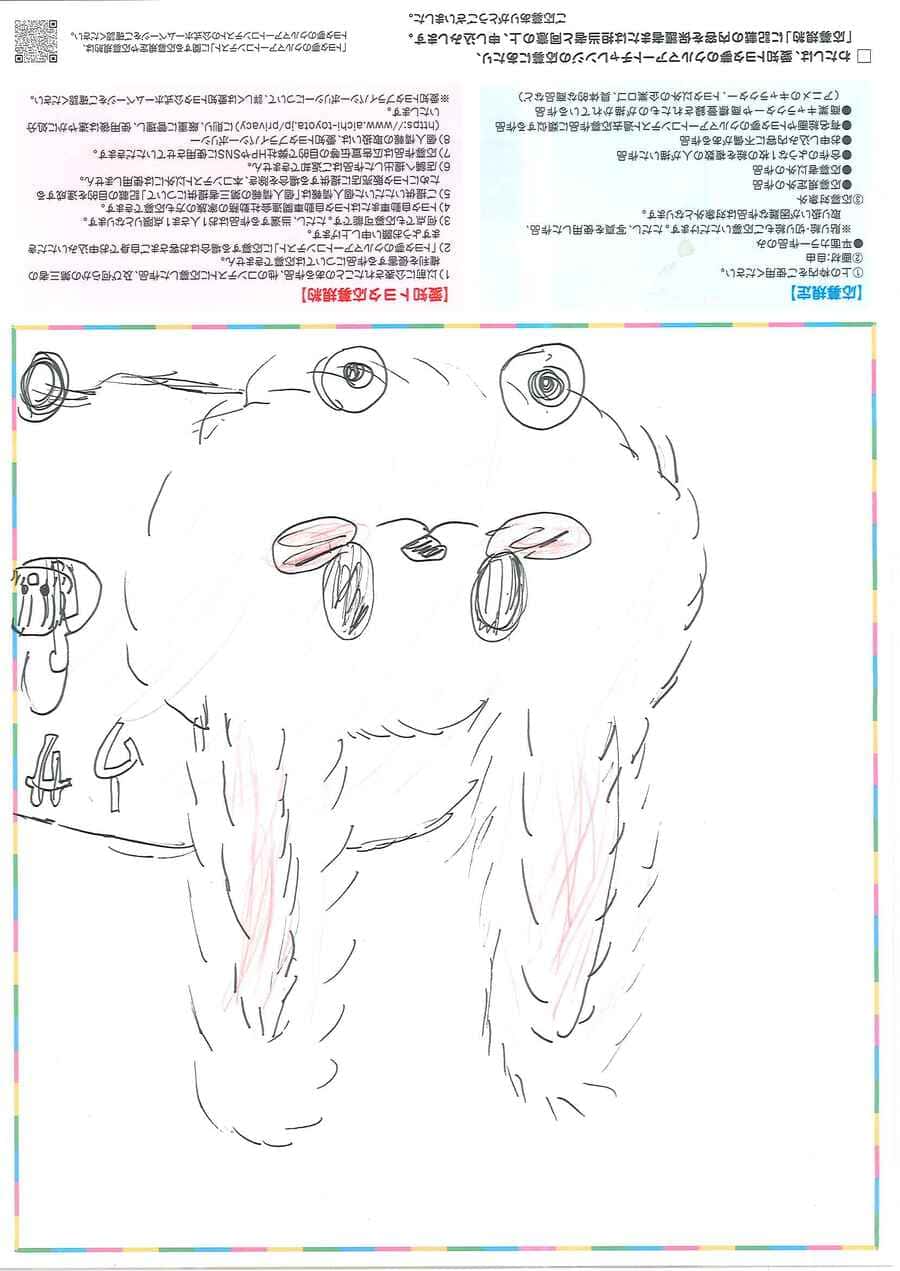 【応募規定】
①上の枠内をご使用ください。
②画材:自由
●平面カラー作品のみ
※貼り絵・切り絵もご応募いただけます。ただし、写真を使用した作品、
取扱いが困難な作品は対象外となります。
③応募対象外
●応募規定外の作品
●応募者以外の作品
●合作のような1枚の絵を複数の人が描いた作品
●お申し込み内容に不備がある作品
●有名絵画やトヨタ夢のクルマアートコンテスト過去応募作品に類似する作品
●商業キャラクターや商標登録されたものが描かれている作品
(アニメのキャラクター、トヨタ以外の企業ロゴ、具体的な商品など)
【愛知トヨタ応募規約】
1)以前に公表されたことのある作品、他のコンテストに応募した作品、及び何らかの第三者の
権利を侵害する作品については応募できません。
2)「トヨタ夢のクルマアートコンテスト」に応募する場合はお客さまご自身でお申込みいただき
ますようお願い申し上げます。
3)何点でも応募可能です。ただし、当選する作品はお1人さま1点限りとなります。
4)トヨタ自動車またはトヨタ自動車関連会社勤務の家族の方も応募できます。
5)ご提供いただいた個人情報は「個人情報の第三者提供について」記載の目的を達成する
ためにトヨタ販売店に提供する場合を除き、本コンテスト以外には使用しません。
6)店舗へ提出した作品はご返却できません。
7)応募作品は広告宣伝等の目的で弊社HPやSNSに使用させていただきます。
8)個人情報の取扱いは、愛知トヨタプライバシーポリシー
(https://www.aichi-toyota.jp/privacy)に則り、厳重に管理し、使用後は速やかに処分
いたします。
※愛知トヨタプライバシーポリシーについて、詳しくは愛知トヨタ公式ホームページをご確認ください。
□ わたしは、愛知トヨタ夢のクルマアートチャレンジの応募にあたり、
「応募規約」に記載の内容を保護者または担当者と同意の上、申し込みします。
ご応募ありがとうございました。
「トヨタ夢のクルマアートコンテスト」に関する応募規定や応募規約は、
トヨタ夢のクルマアートコンテストの公式ホームページをご確認ください。